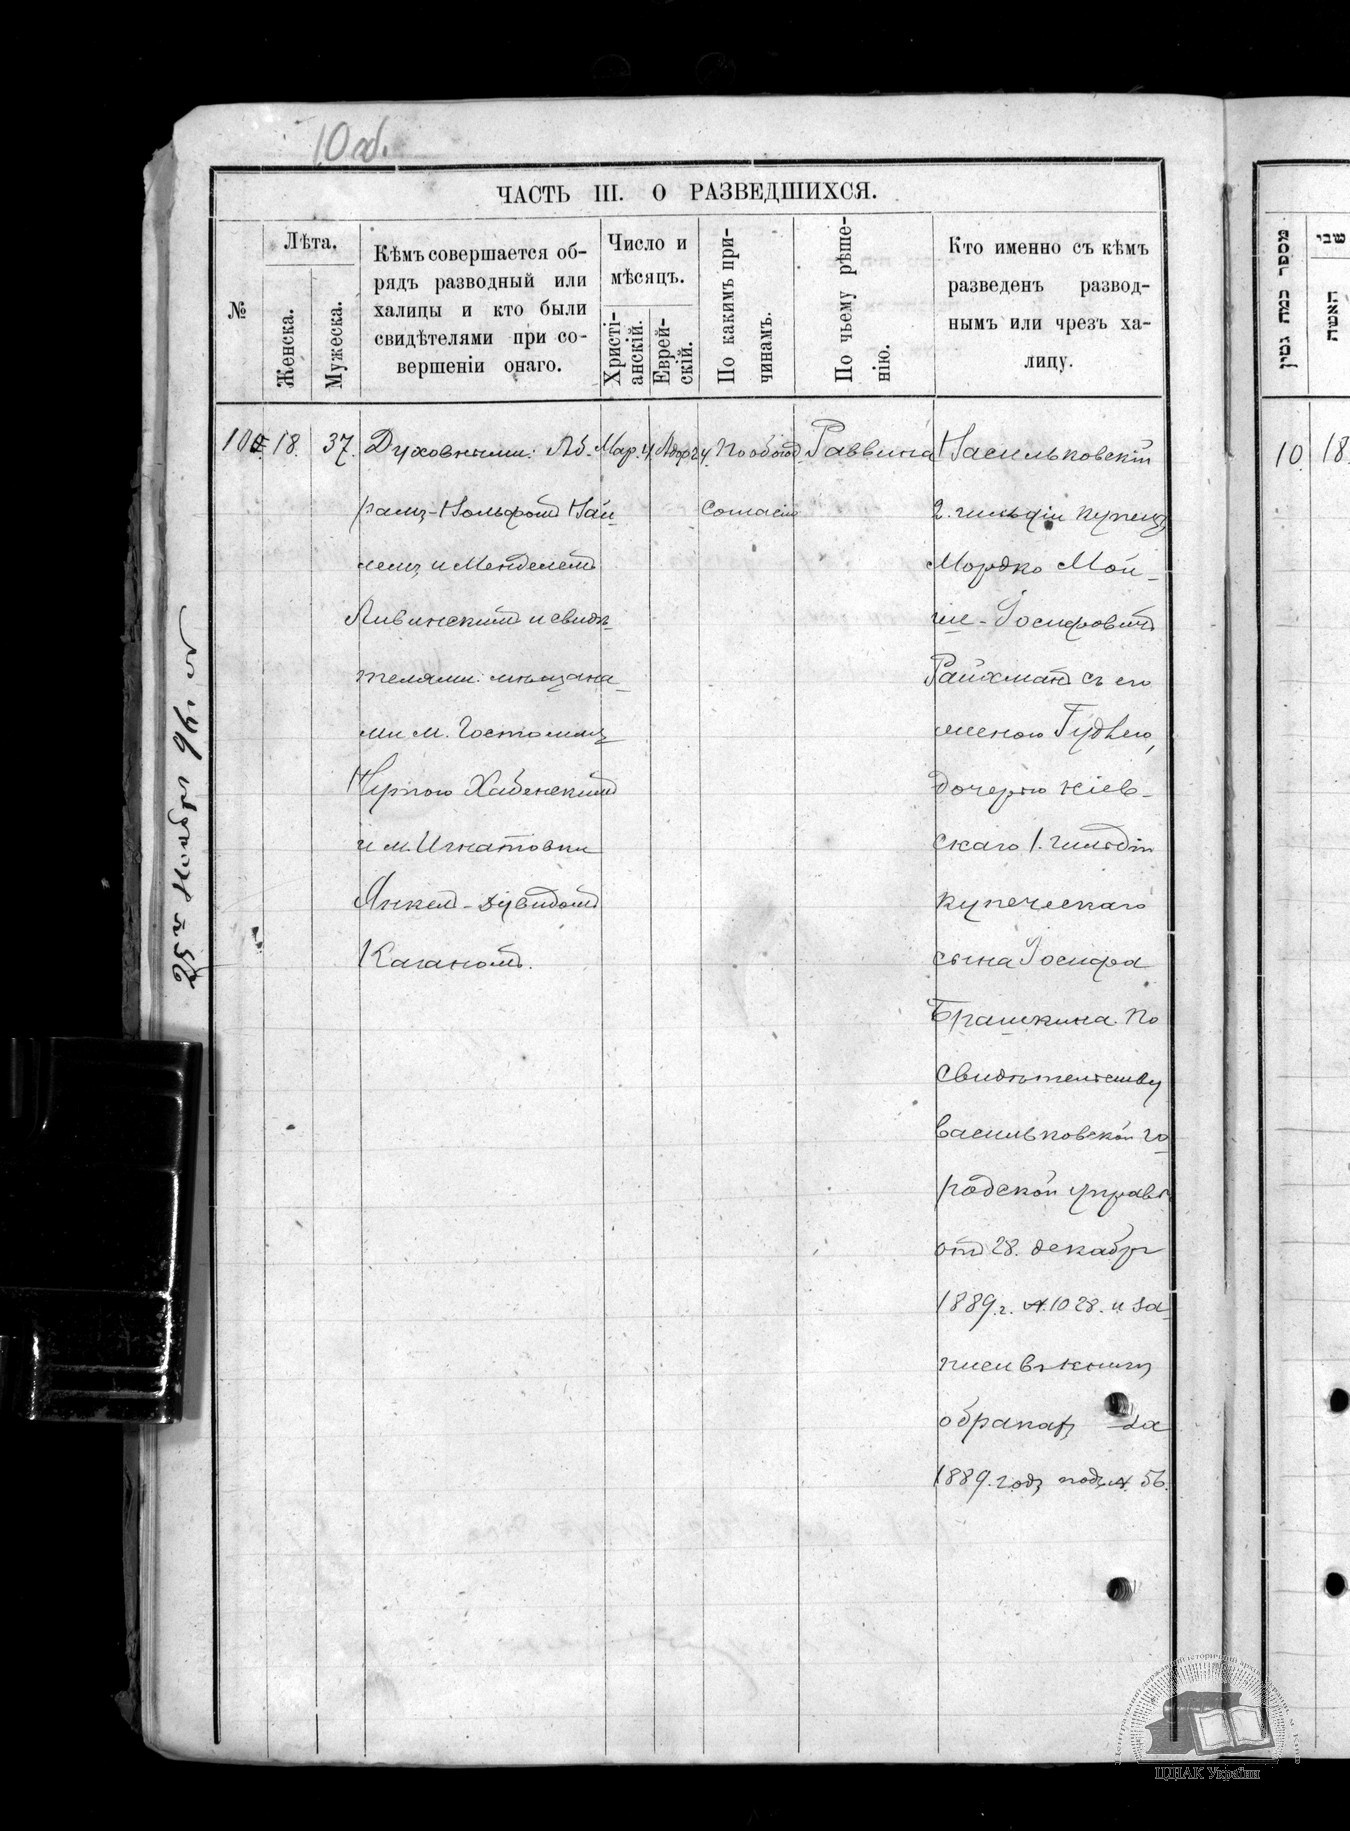 10 об.
ЧАСТЬ III. О РАЗВЕДШИХСЯ.
№
Лѣта.
Женска.
Мужеска.
Кѣмъ совершается об-
рядъ разводный или
халицы и кто были
свидѣтелями при со-
вершеніи онаго.
Число и
мѣсяцъ.
Христі-
анскій.
Еврей-
скій.
По какимъ при-
чинамъ.
По чьему рѣше-
нію.
Кто именно съ кѣмъ
разведенъ развод-
нымъ или чрезъ ха-
лицу.
10
18.
37.
Духовными: Аб-
рамъ-Вольфомъ
и Менделемъ
Ливинскимъ и свидѣ-
телями: мѣщана-
ми м. Гостомля
Хабенскимъ
и м. Игнатовки
Янкель-Дувидомъ
Каганомъ.
Мар. 4.
Адор 24.
По обоюд.
согласію
Раввина
Васильковскій
2. гильдіи купецъ
Мордко Мой-
ше-Іосифовичъ
Райхманъ съ его
женою Гудлею,
дочерью кіев-
скаго 1. гильдіи
купеческаго
сына Іосифа
Брашкина. По
свидѣтельству
васильковской го-
родской управы
отъ 28. декабря
1889. г. № 1028. и за-
писи въ книгѣ
о бракахъ за
1889. годъ подъ № 56.
מספר כמה גטין
שני
האשה
10.
18.
ЦДІАК України